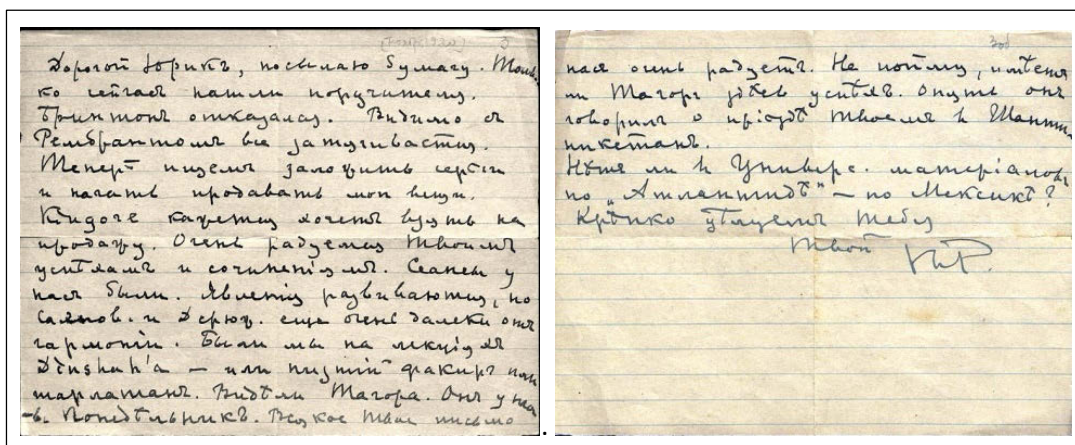 Дорогой Юрикъ, посылаю бумагу. Толь-
ко сейчасъ нашли поручителя.
Бринтонъ отказался. Видимо съ
Рембрантомъ все затягивается.
Теперь пишемъ заложить серьги
и начать продавать мои вещи.
Кидоге кажется хочетъ взять на
продажу. Очень радуемся твоимъ
успѣхамъ и сочиненіямъ. Сеансы у
насъ были. Явленія развиваются, но
Саянов. и Дерюж. еще очень далеки отъ
гармоніи. Были мы на лекціяхъ
Dinshah'a — или низшій факиръ или
шарлатанъ. Видѣли Тагора. Онъ у нас
въ Понедѣльникъ. Всякое твое письмо
насъ очень радуетъ. Не пойму, имѣетъ
ли Тагоръ здѣсь успѣхъ. Опять онъ
говорилъ о пріѣздѣ твоемъ въ Шанти-
никетанъ.
Нѣтъ ли въ Универс. матеріаловъ
по „Атлантидѣ“ — по Мексикѣ?
Крѣпко цѣлуемъ тебя
Твой НР.